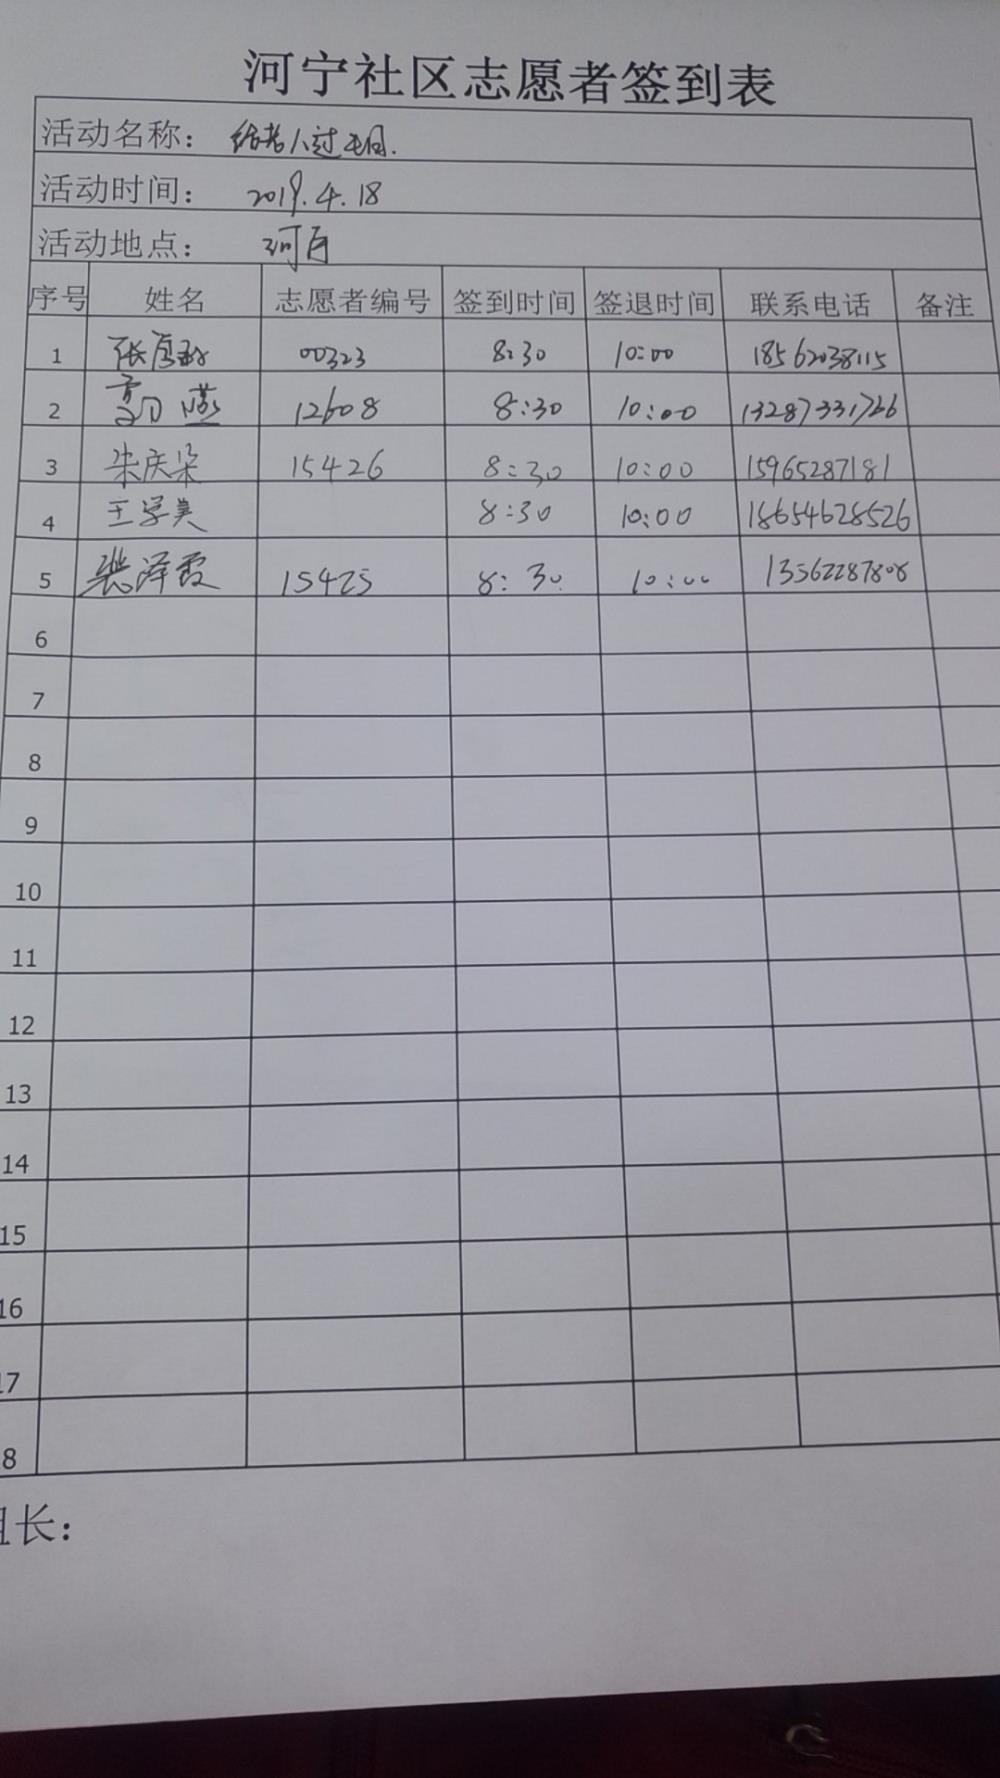 河宁社区志愿者签到表
活动名称: 给老人过生日.
活动时间: 2019.4.18
活动地点: 河
序号 姓名 志愿者编号 签到时间 签退时间 联系电话 备注
1 张 00323 8:30 10:00 18562038115
2 燕 12608 8:30 10:00 13287331766
3 朱庆朵 15426 8:30 10:00 15965287181
4 王学美 8:30 10:00 18654628526
5 裴泽霞 15425 8:30 10:00 13562287808
6
7
8
9
10
11
12
13
14
15
16
17
8
长: